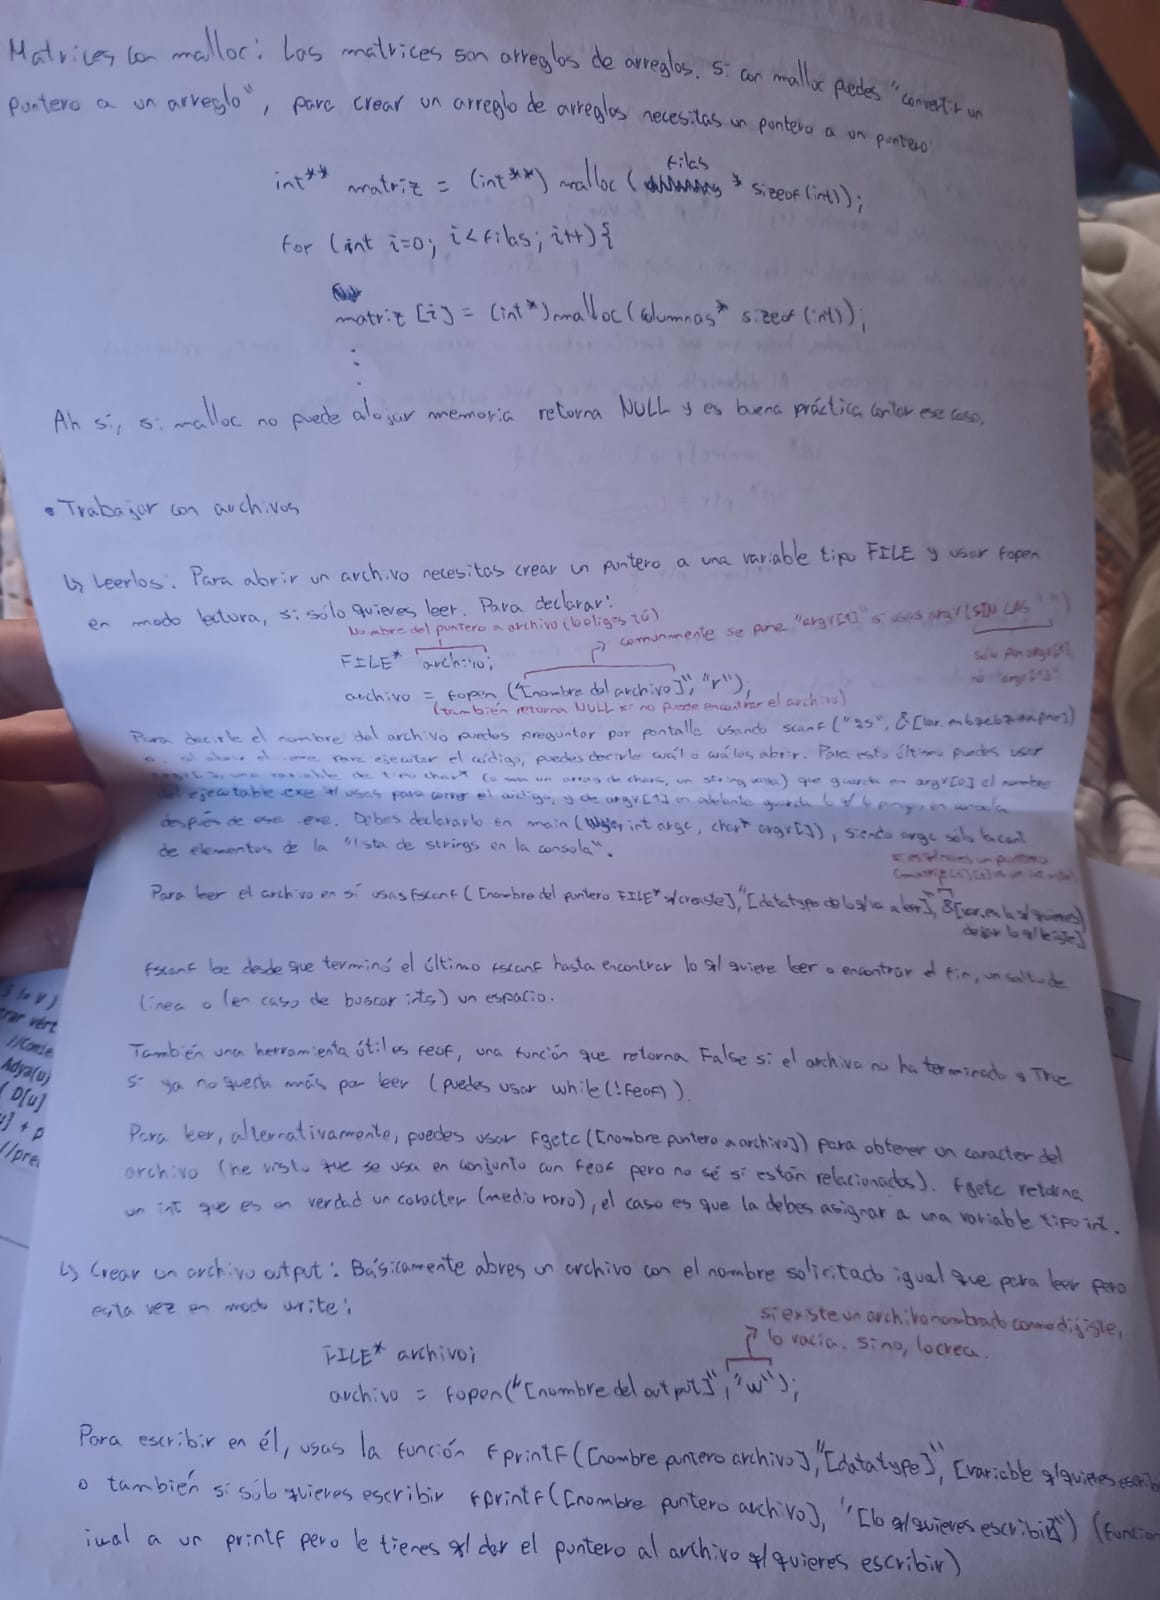 Matrices con malloc: Las matrices son arreglos de arreglos. Si con malloc puedes "convertir un
puntero a un arreglo", para crear un arreglo de arreglos necesitas un puntero a un puntero:
filas
int** matriz = (int**) malloc ( * sizeof(int));
for (int i=0; i<filas; i++){
matriz [i] = (int*)malloc(columnas* sizeof(int));
:
Ah sí, si malloc no puede alojar memoria retorna NULL y es buena práctica contar ese caso.
• Trabajar con archivos
↳ Leerlos. Para abrir un archivo necesitas crear un puntero a una variable tipo FILE y usar fopen
en modo lectura, si sólo quieres leer. Para declarar:
Nombre del puntero a archivo (lo eliges tú)
comúnmente se pone "argv[1]" si usas argv (SIN LAS " ")
FILE* archivo;
sólo pon argv[1]
no "argv[1]"
archivo = fopen ("[nombre del archivo]", "r");
(también retorna NULL si no puede encontrar el archivo)
Para decirle el nombre del archivo puedes preguntar por pantalla usando scanf ("%s", &[var.
para ejecutar el código, puedes decirle cuál o cuáles abrir. Para esto último puedes usar
una variable de tipo char* (o sea un array de chars, un string) que guarda en argv[0] el nombre
del ejecutable .exe q/ usas para correr el código, y de argv[1] en adelante guarda lo q/ en consola
después de ese .exe. Debes declararlo en main ( int argc, char* argv[]), siendo argc sólo la cant
de elementos de la "lista de strings en la consola".
un puntero
Para leer el archivo en sí usas fscanf ( [nombre del puntero FILE* q/ creaste], "[datatype de lo q/ va a leer]", &[var. en la q/ quieres]
dejar lo q/ leiste]
fscanf lee desde que terminó el último fscanf hasta encontrar lo q/ quiere leer o encontrar el fin, un salto de
línea o (en caso de buscar ints) un espacio.
También una herramienta útil es feof, una función que retorna False si el archivo no ha terminado y True
si ya no queda más por leer (puedes usar while(!feof)).
Para leer, alternativamente, puedes usar fgetc([nombre puntero a archivo]) para obtener un caracter del
archivo (he visto que se usa en conjunto con feof pero no sé si están relacionados). fgetc retorna
un int que es en verdad un caracter (medio raro), el caso es que la debes asignar a una variable tipo int.
↳ Crear un archivo output: Básicamente abres un archivo con el nombre solicitado igual que para leer pero
esta vez en modo write:
si existe un archivo nombrado como dijiste,
lo vacía. Si no, lo crea.
FILE* archivo;
archivo = fopen("[nombre del output]", "w");
Para escribir en él, usas la función fprintf([nombre puntero archivo], "[datatype]", [variable q/ quieres
o también si sólo quieres escribir fprintf([nombre puntero archivo], "[lo q/ quieres escribir]") (funcion
iual a un printf pero le tienes q/ dar el puntero al archivo q/ quieres escribir)